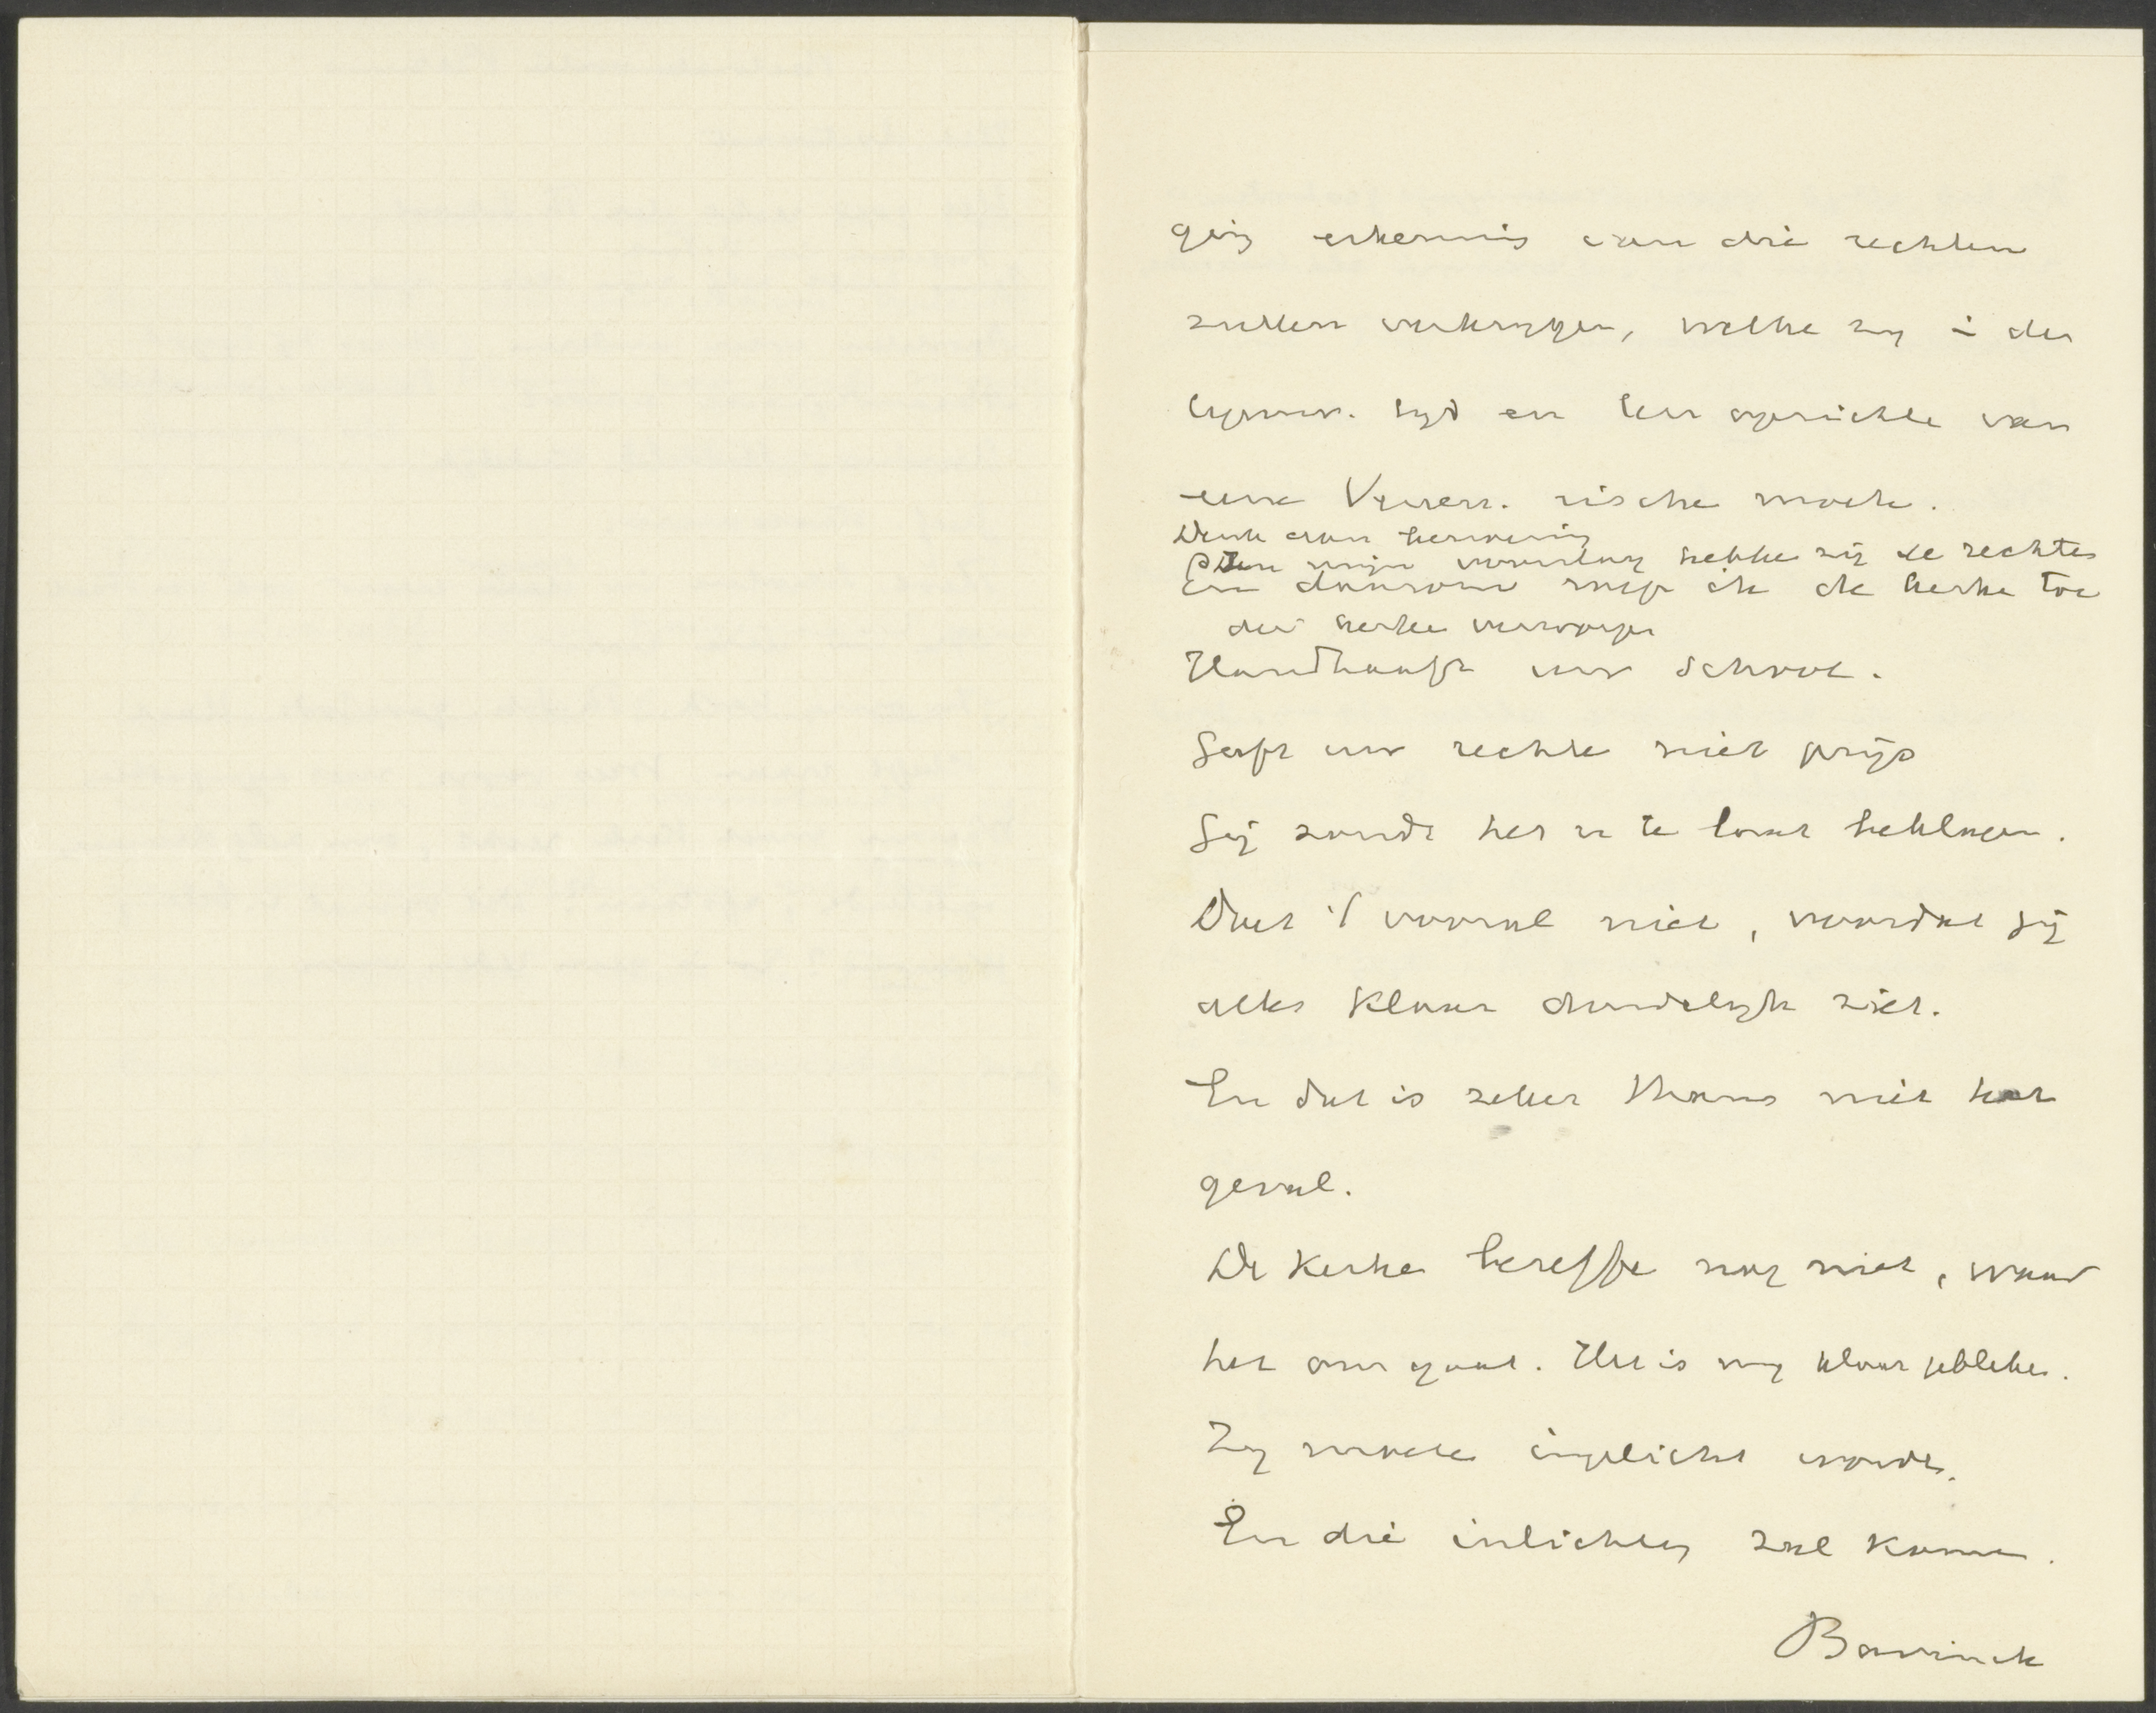 erkennis van die rechten
zullen verkrijgen, welke zij i der
tijd en ten opzichte van
eene Vereen. rische mocht.
Denk aan
mijn voorslag hebbe zij de rechten
En daarom roep ik de kerke toe
der kerke
Handhaaft uw School.
Geeft uw rechte niet prijs
Gij zoudt het u te laat beklagen.
Doet 't vooral niet, voordat gij
alles klaar duidelijk ziet.
En dat is zeker thans niet het
geval.
De Kerke beseffe nog niet, waar
het om gaat. Het is mij klaar gebleke.
Zij moete ingelicht worde.
En die inlichting zal kome.
Bavinck